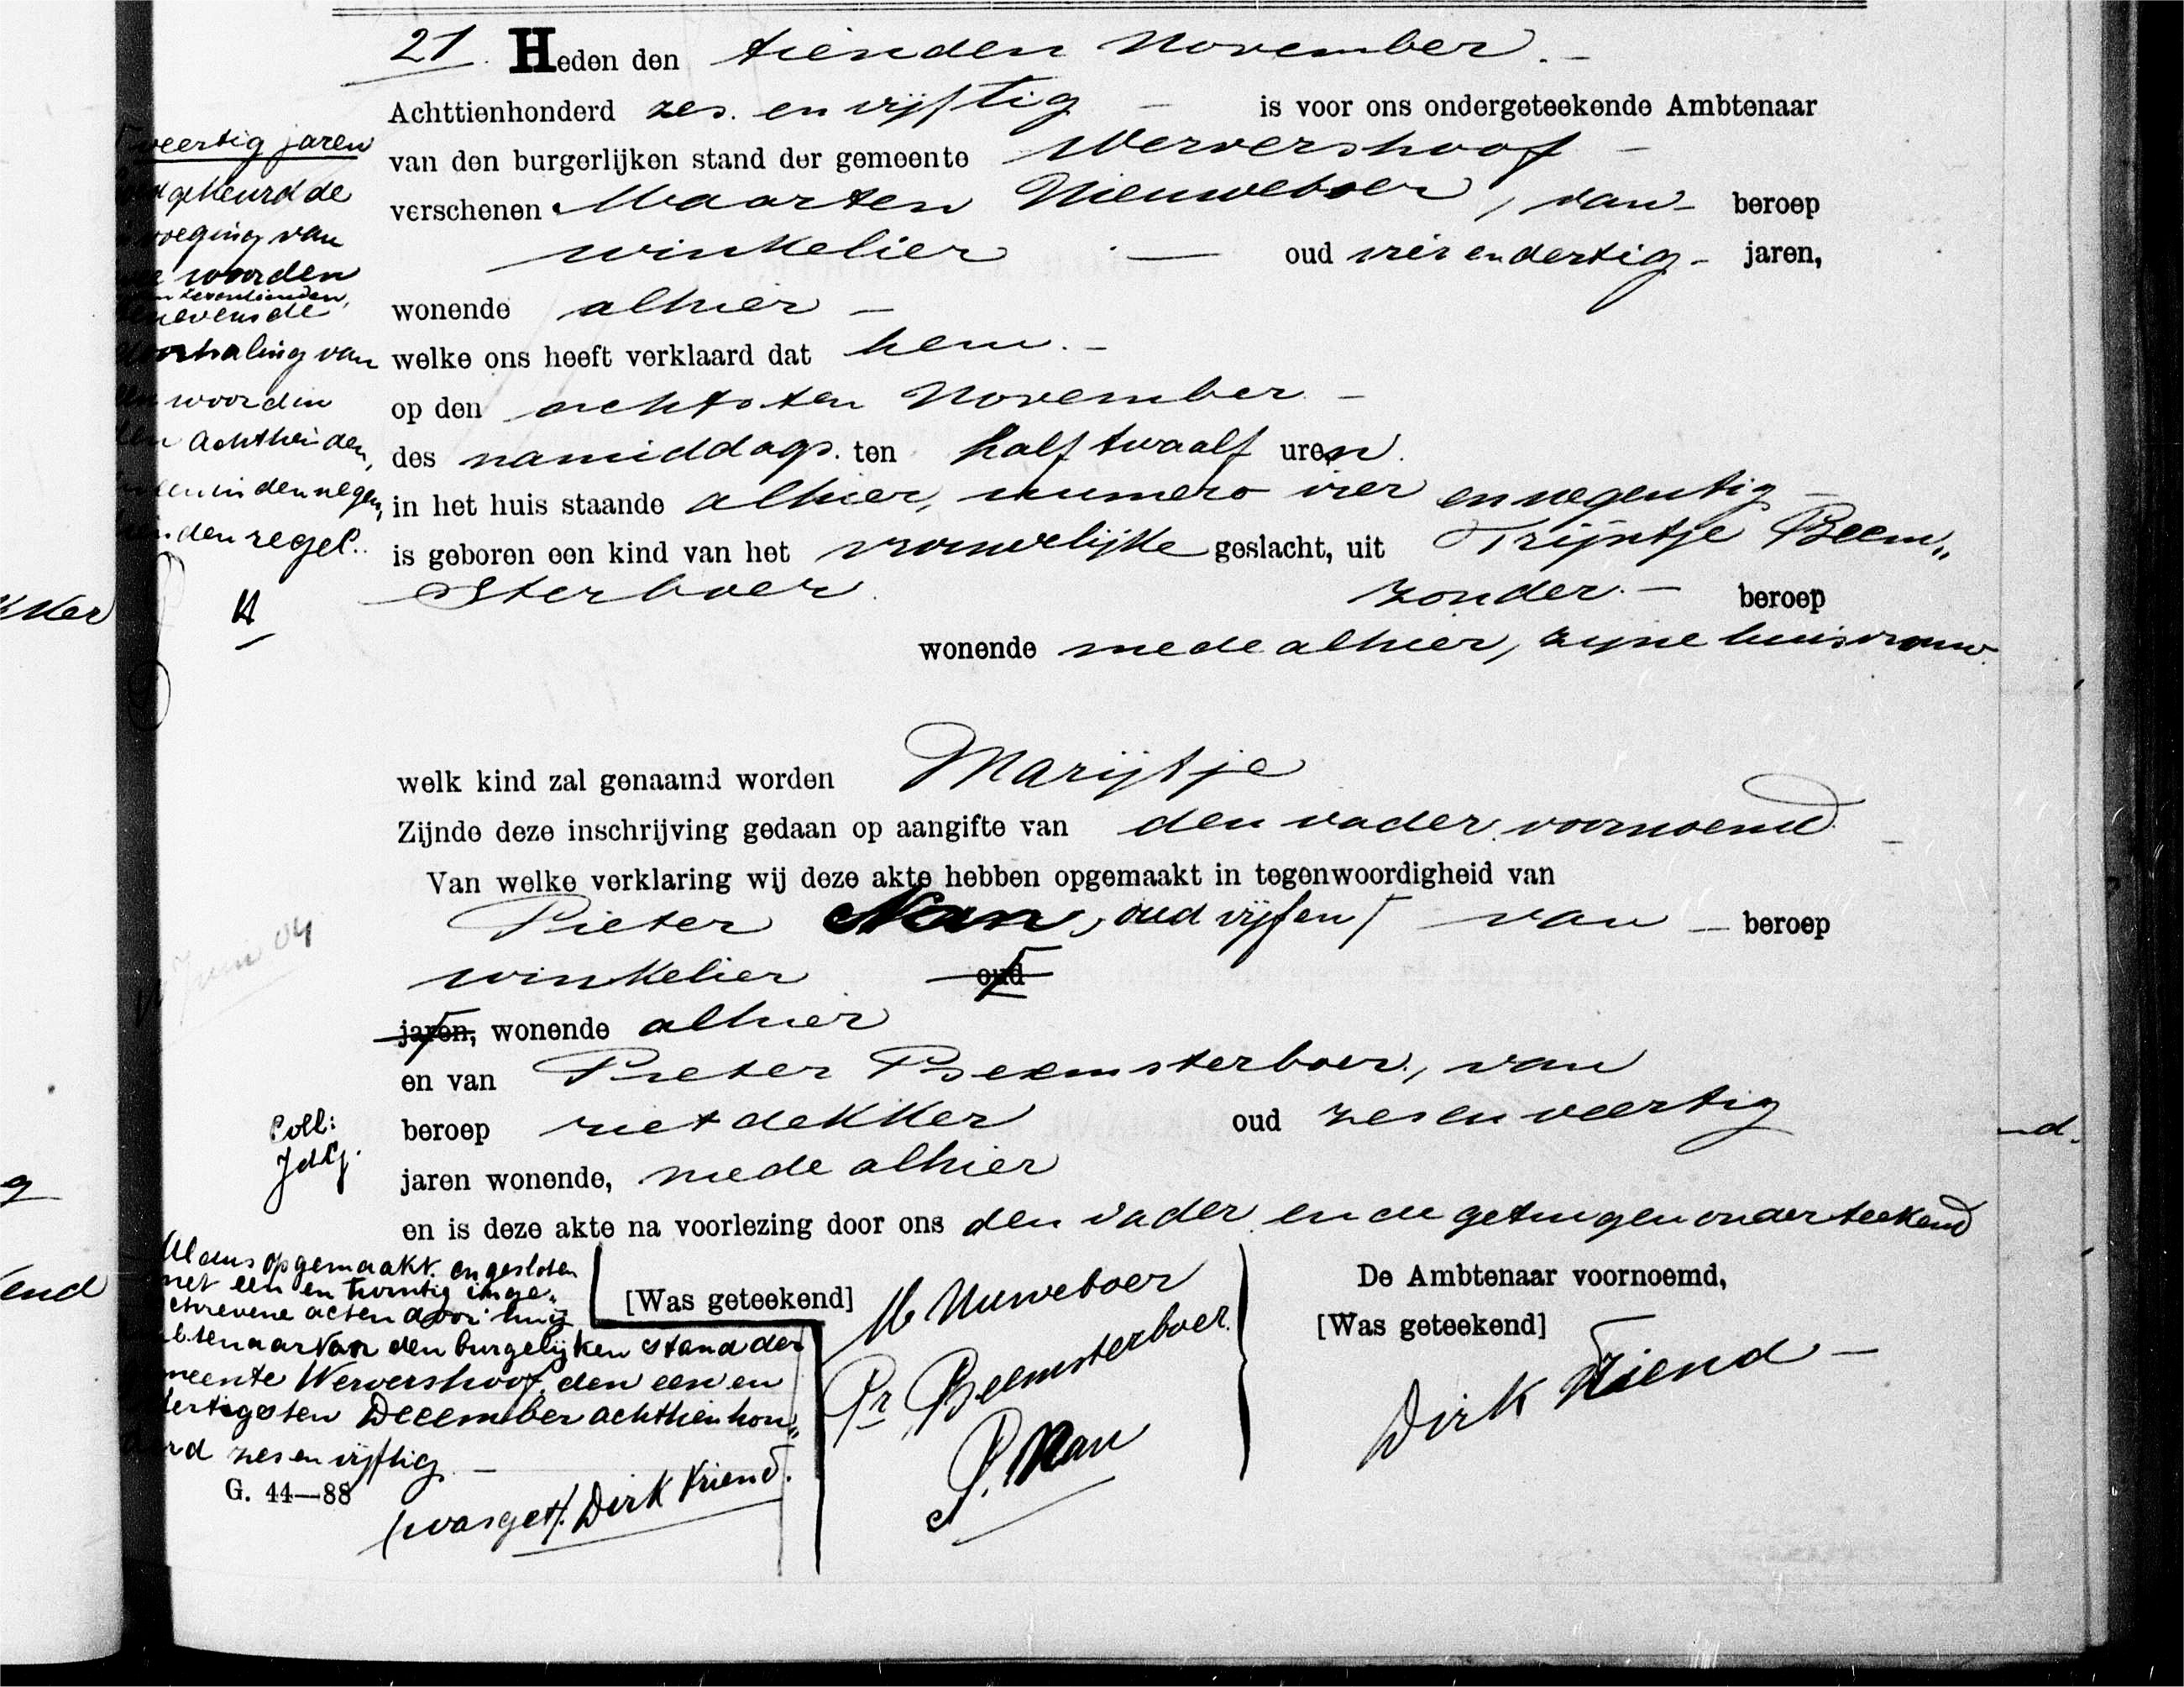 21. Heden den tienden November. -
Achttienhonderd zes. en vijftig - is voor ons ondergeteekende Ambtenaar
van den burgerlijken stand der gemeente Wervershoof -
verschenen Maarten Nieuweboer, van - beroep
winkelier - oud vier en dertig - jaren,
wonende alhier -
welke ons heeft verklaard dat hem. -
op den achtsten November -
des namiddags. ten half twaalf uren.
in het huis staande alhier, numero vier en negentig -
is geboren een kind van het vrouwelijke geslacht, uit Trijntje Beem„
sterboer zonder. - beroep
wonende mede alhier, zijne huisvrouw.
welk kind zal genaamd worden Marijtje
Zijnde deze inschrijving gedaan op aangifte van den vader voornoemd -
Van welke verklaring wij deze akte hebben opgemaakt in tegenwoordigheid van
Pieter Nan, oud vijf en van - beroep
winkelier oud
jaren, wonende alhier
en van Pieter Beemsterboer, van
beroep rietdekker oud zes en veertig
jaren wonende, mede alhier
en is deze akte na voorlezing door ons den vader en de getuigen onderteekend
[Was geteekend] M Nuweboer
Pr Beemsterboer.
P. Nan
De Ambtenaar voornoemd,
[Was geteekend]
Dirk Vriend -
veertig jaren
gekeurd de
voeging van
woorden
zeventienden,
benevens de
doorhaling van
woorden
achttienden,
in den negen„
den regel.
Juni 04
Coll:
Aldus opgemaakt en gesloten
met een en twintig inge„
schrevene acten door mij
Ambtenaar van den burgelijken stand der
Gemeente Wervershoof, den een en
dertigsten December achttienhon„
derd zes en vijftig -
G. 44—88
(was get). Dirk Vriend.
kker
g
end
nd.